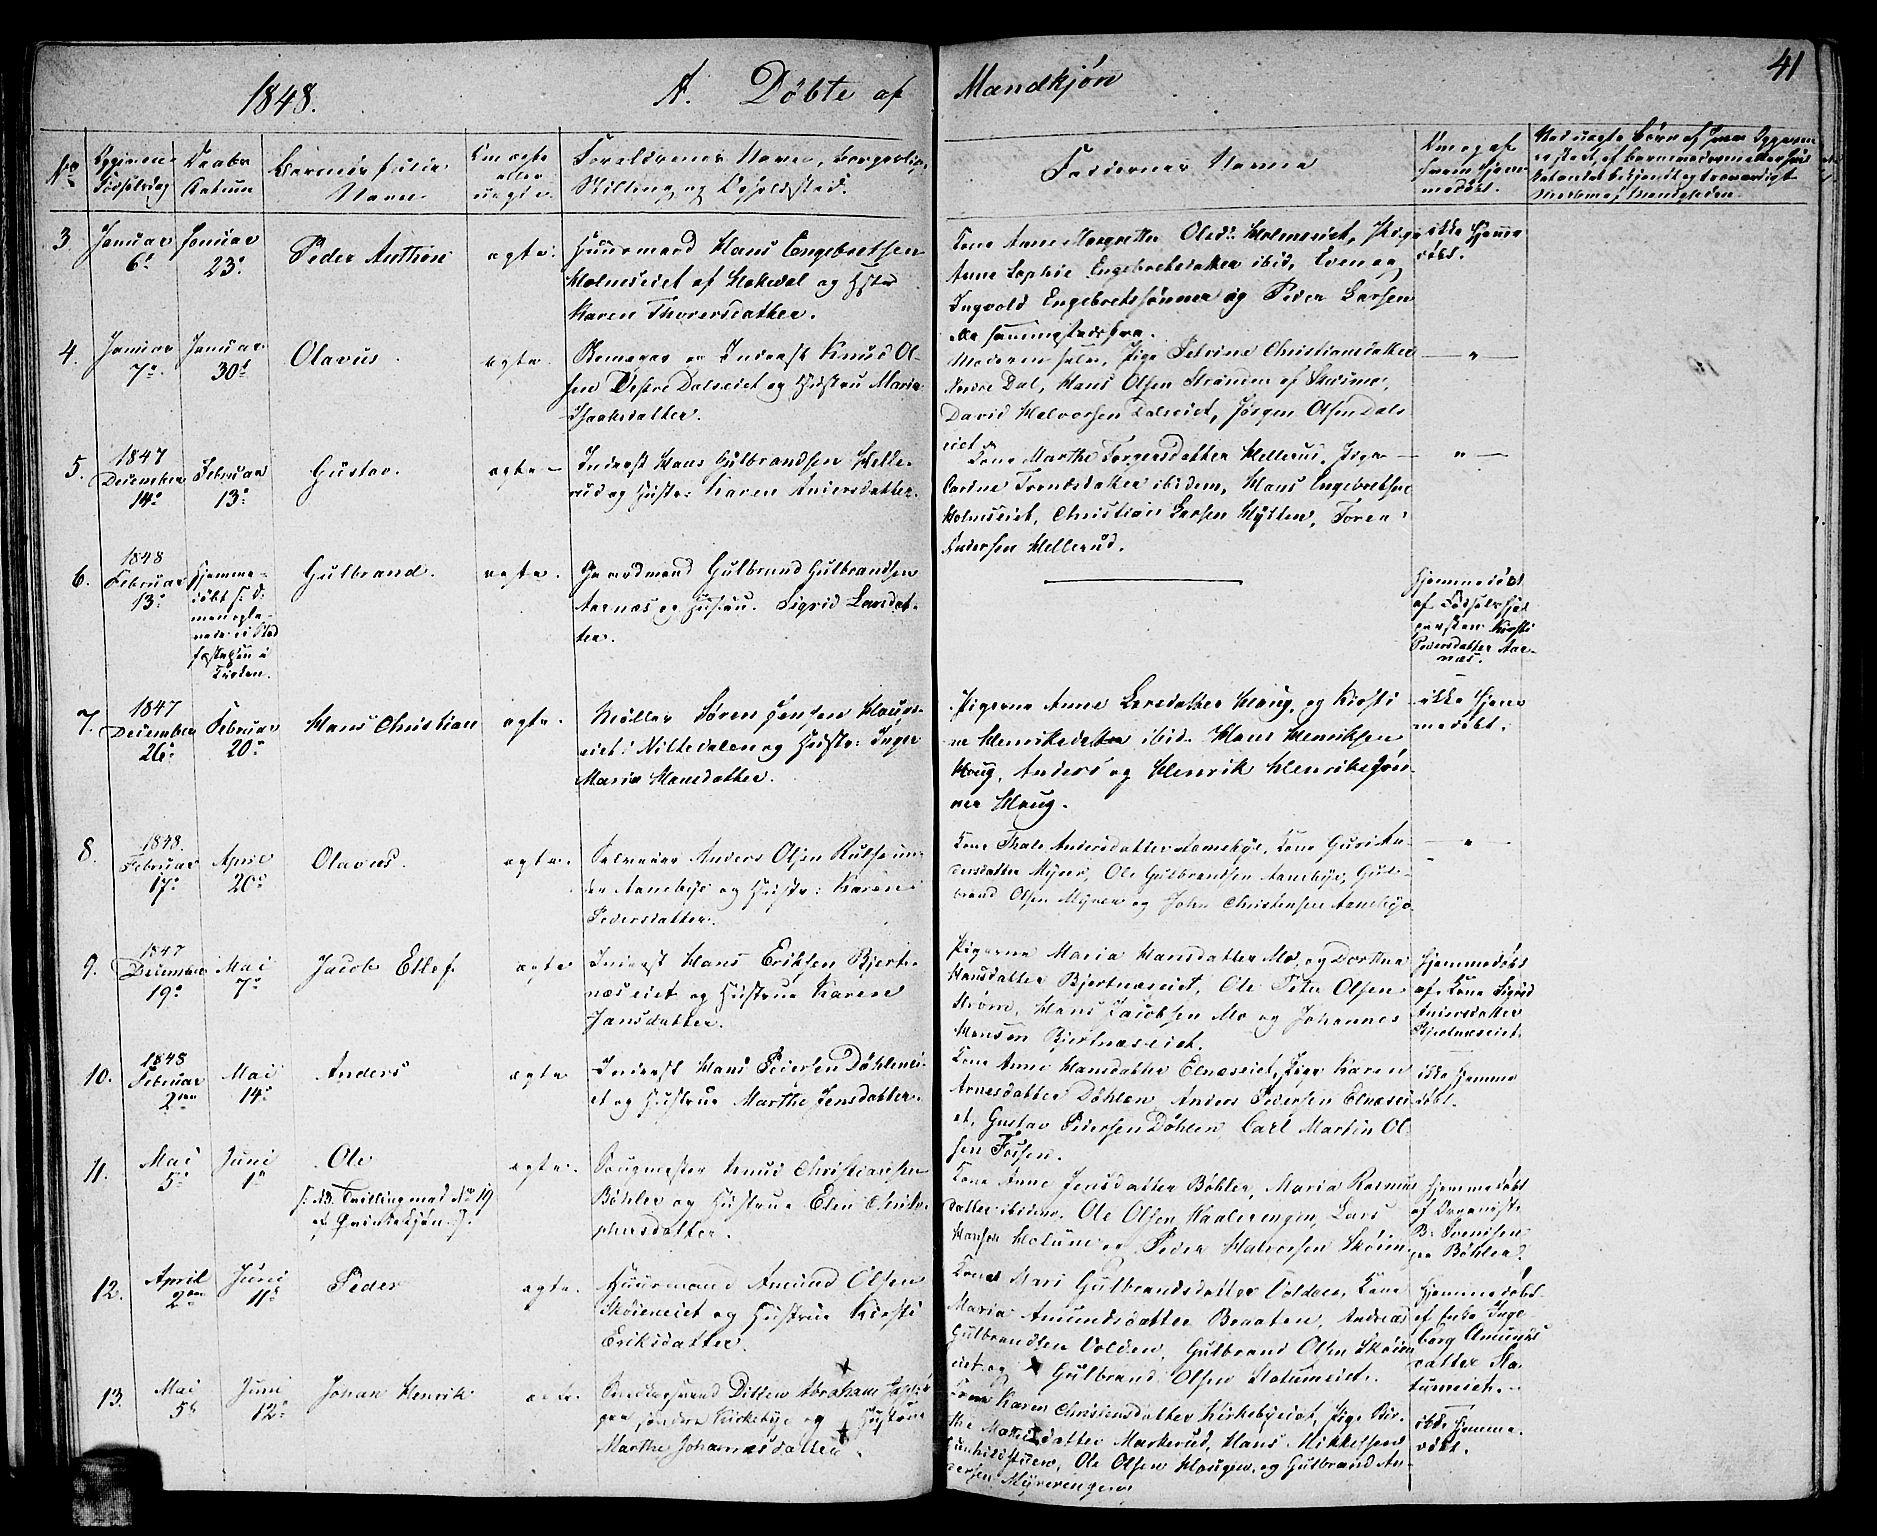 1848.
A. Døbte af
Mandkjøn
41
No
Opgivne Fødselsdag
Daabs Datum
Barnets fulde Navn
Om ægte eller uægte.
Forældrenes Navn, Borgerlige Stilling og Opholdssted.
Faddernes Navne
Om og af hvem hjemmedøbt.
3.
Januar
6te
Januar
23de
Peder Anthon
ægte.
Huusmand Hans Engebretsen
Holmseiet af Hakedal og Hstr
Karen Thorersdatter.
Kone Anne Margrethe Olsd. Holmseiet, Pige
Anne Sophie Engebretsdatter ibid, Even og
Ingvold Engebretssønner og Peder Larsen
ikke hjemme
døbt.
4.
Januar
7de
Januar
30te
Olavus.
ægte
Inderst Knud Ol-
sen Østre Dalseiet og Hustru Maria
Isaksdatter.
Moderen selv, Pige Petrine Christiansdatter
Nordre Dal, Hans Olsen Stranden af
David Halvorsen Dalseiet, Jørgen Olsen Dals
eiet
— " —
5.
1847
December
14de
Februar
13de
Gustav.
ægte
Inderst Hans Gulbrandsen Helle-
rud og Hustr. Karen Andersdatter.
Kone Marthe Torgersdatter Hellerud, Pige
Carine Trondsdatter ibidem, Hans Engebretsen
Holmseiet, Christian Larsen Hytten, Toren
Andersen Hellerud.
— " —
6.
1848
Februar
13de
Hjemme-
døbt
men
fæstelsen i
Kirken.
Gulbrand.
ægte.
Gaardmand Gulbrand Gulbrandsen
Aarnæs og Hustru. Sigrid Larsdat-
ter.
Hjemmedøbt
af Fødselshjel
persken Kirsti
Pedersdatter Aar-
næs.
7.
1847
December
26de
Februar
20de
Hans Christian
ægte.
Møller Søren Jensen Haugs-
eiet i Nittedalen og Hustr. Inger
Maria Hansdatter.
Pigerne Anne Larsdatter Haug, og Kirsti-
ne Henriksdatter ibid. Hans Henriksen
Haug, Anders og Henrik Henrikssøn-
ner Haug.
ikke hjem
medøbt.
8.
1848.
Februar
17de
April
20de
Olavus.
ægte.
Selveier Anders Olsen
Aaneby og Hustr. Karen
Pedersdatter.
Kone Thale Andersdatter Aaneby, Kone Guri An-
dersdatter Myrer, Ole Gulbrandsen Aaneby, Gul-
brand Olsen Myrer og John Christensen Aaneby
— " —
9.
1847
December
19de
Mai
7de
Jacob Ellef
ægte
Inderst Hans Eriksen Bjert-
næseiet og Hustrue Karen
Jansdatter.
Pigerne Maria Hansdatter Mo, og Dorthea
Hansdatter Bjertnæseiet, Ole Peter Olsen
Strøm, Hans Jacobsen Mo og Johannes
Hansen Bjertnæseiet.
Hjemmedøbt
af Kone Sigrid
Andersdatter
Bjertnæseiet.
10.
1848
Februar
2den
Mai
14de
Anders
ægte
Inderst Hans Pedersen Døhlenei-
et og Hustrue Marthe Jensdatter.
Kone Anne Hansdatter Elnæseiet, Pige Karen
Arnesdatter Døhlen, Anders Pedersen Elnæsei-
et, Gustav Pedersen Døhlen, Carl Martin Ol-
sen Fossen.
ikke hjemme
døbt.
11.
Mai
5te
Juni
1ste
Ole
(: NB. Tvilling med No 19
af Qvindekjøn. :)
ægte.
Knud Christiansen
Bøhler og Hustrue Elen Christo-
phersdatter.
Kone Anne Jensdatter Bøhler, Maria Rasmus
datter ibidem. Ole Olsen Haaleringen, Lars
Hansen Holum og Peder Halvorsen Skøien
Hjemmedøbt
af Organist
B. Svendsen
Bøhler.
12.
April
2den
Juni
11te
Peder
ægte.
Huusmand Amund Olsen
Skøieneiet og Hustrue Kirsti
Eriksdatter.
Kone Mari Gulbrandsdatter Volden, Kone
Maria Amundsdatter Braaten, Andreas
Gulbrandsen Volden, Gulbrand Olsen Skøien
eiet og Gulbrand Olsen Slatumeiet.
Hjemmedøbt
af Enke Inge
borg Amunds
datter Sla-
tumeiet.
13.
Mai
5te
Juni
12te
Johan Henrik
ægte.
Ditlev Abraham
søndre Kirkeby og Hustrue
Marthe Johannesdatter.
Kone Karen Christensdatter Kirkebyeiet, Pige Bir-
the datter Markerud, Hans Mikkelsen
Ole Olsen Haugen, og Gulbrand An-
dersen Myreringen
ikke hjemme
døbt.